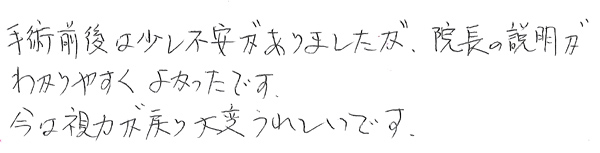 手術前後は少し不安がありましたが、院長の説明が
わかりやすく よかったです.
今は視力が戻り大変うれしいです.